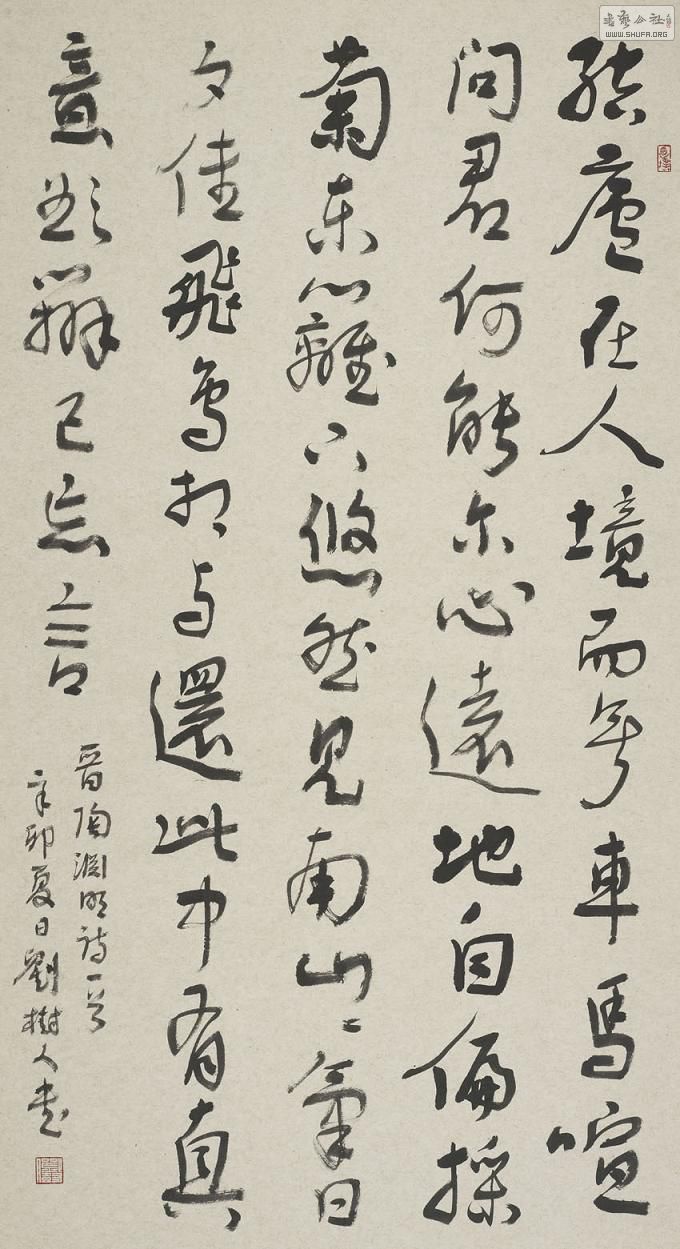 結廬在人境而無車馬喧
問君何能尔心遠地自偏採
菊東籬下悠然見南山山氣日
夕佳飛鳥相与還此中有真
意欲辨已忘言
晋陶淵明詩一首
辛卯夏日劉樹人書
WWW.SHUFA.ORG